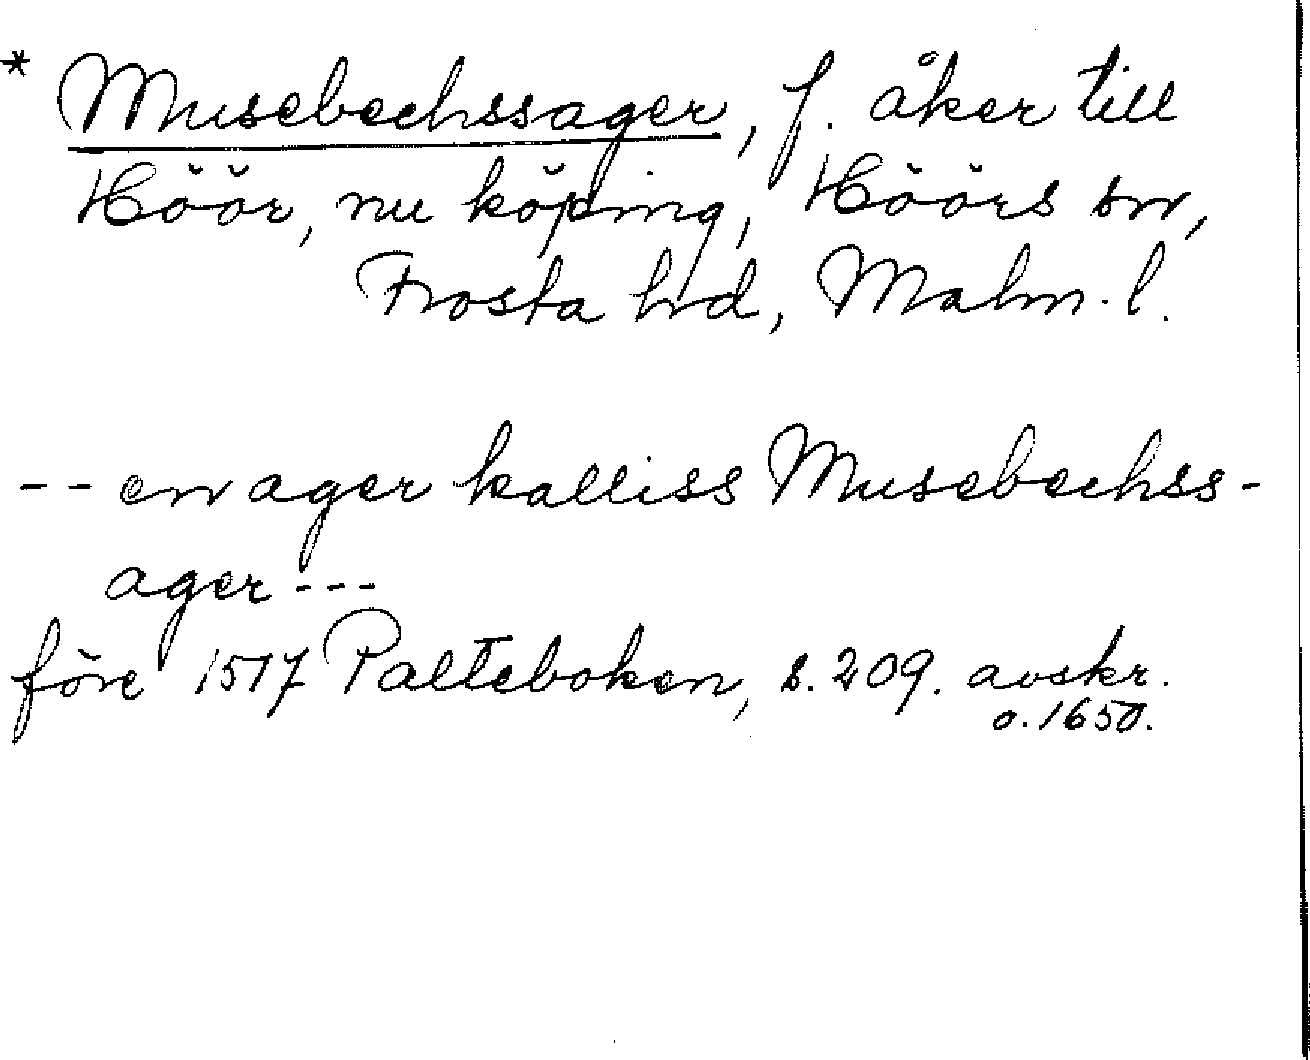 * Musebechssager, f. åker till
Höör, nu köping, Höörs sn,
Frosta hd, Malm. l.
-- en ager kalliss Musebechss-
ager ---
före 1517 Palteboken, s. 209. avskr.
o. 1650.